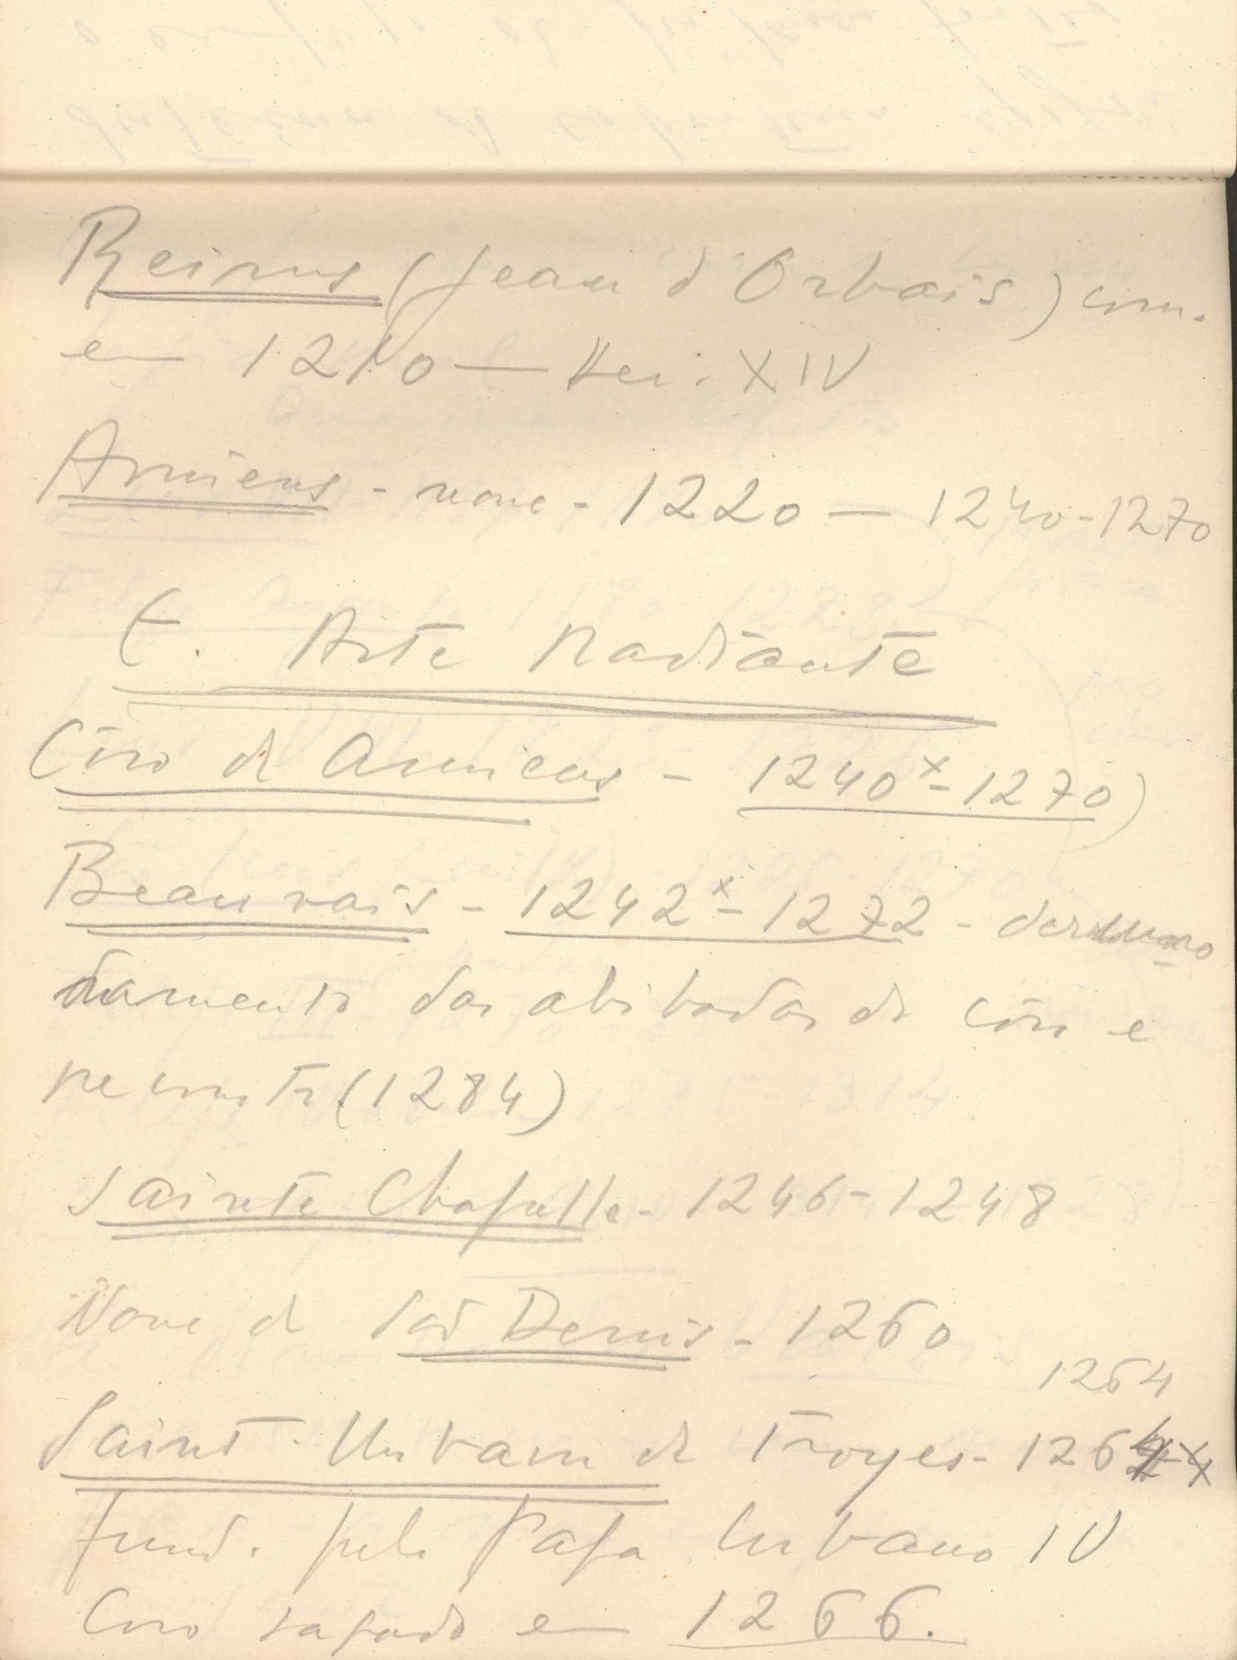 Reims (Jean d'Orbais) com.
em 1210 — XIV
Amiens - nave - 1220 — 1240-1270
E. Arte Radiante
Côro de Amiens - 1240x-1270)
Beauvais - 1242x-1272 - desmoro
namento das abóbadas do côro e
reconstr (1284)
Sainte Chapelle - 1246-1248
Nave de Denis - 1260
1264
Saint-Urbain de Troyes - 1264 x
fund. pelo Papa Urbano IV
Coro sagrado em 1266.